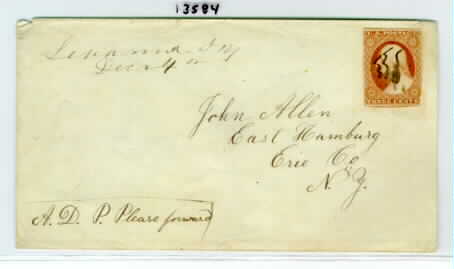 13584
U.S. POSTAGE
THREE CENTS
Dec 4
John Allen
East Hamburg
Erie Co
N.Y.
A. D. P. Please forward